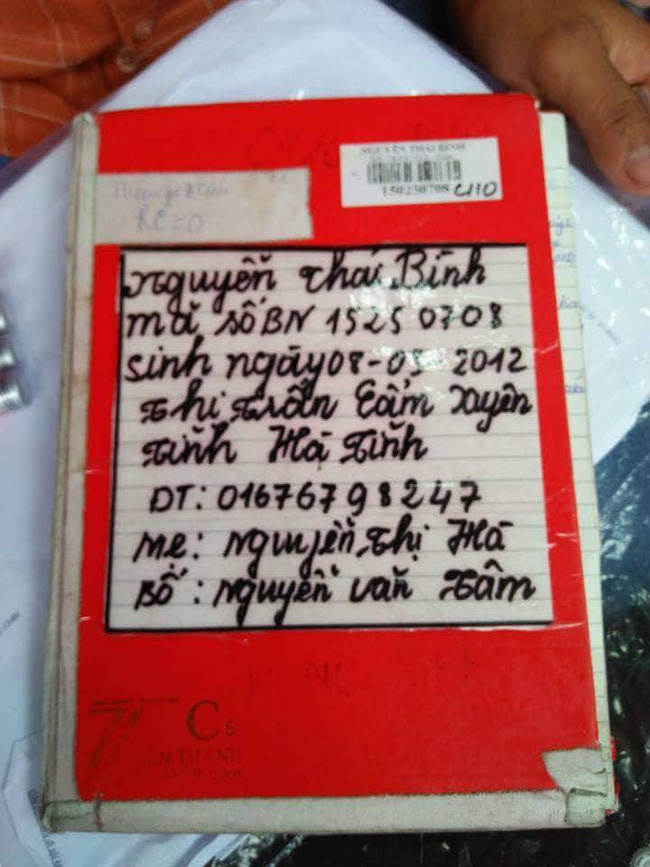 NGUYỄN THÁI BÌNH
150250708 C110
RE = 0
Nguyễn Thái Bình
mã số BN 15250708
sinh ngày 08-05-2012
thị trấn Cẩm Xuyên
tỉnh Hà Tĩnh
DT: 01676798247
mẹ: Nguyễn Thị Hà
Bố: Nguyễn Văn Tâm
C5